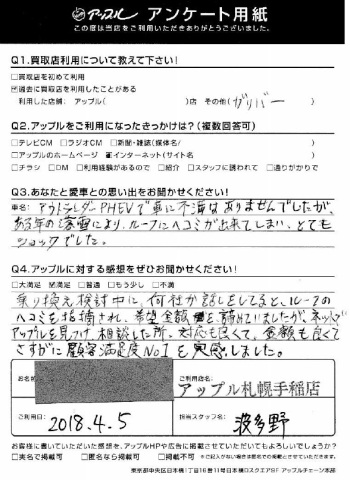 アップル アンケート用紙
この度は当店をご利用いただきありがとうございました。
Q1.買取店利用について教えて下さい!
□買取店を初めて利用
☑過去に買取店を利用したことがある
利用した店舗: アップル( )店 その他(ガリバー)
Q2.アップルをご利用になったきっかけは?(複数回答可)
□テレビCM □ラジオCM □新聞・雑誌(媒体名/ )
□アップルのホームページ ☑インターネット(サイト名 )
□チラシ □DM □利用経験があるので □紹介 □スタッフに誘われて □通りがかりで
Q3.あなたと愛車との思い出をお聞かせください!
車名: アウトランダーPHEVで車に不満はありませんでしたが、
ある年の落雪により、ルーフにヘコミが出来てしまい、とても
ショックでした。
Q4.アップルに対する感想をぜひお聞かせください!
□大満足 ☑満足 □普通 □もう少し □不満
乗り換え検討中に、何社か話しをしてると、ルーフの
ヘコミを指摘され、希望金額を諦めていましたが、ネットで
アップルを見つけ相談した所、対応も良くて、金額も良くて
さすがに顧客満足度No1を実感しました。
お名前
ご利用店名:
アップル札幌手稲店
ご利用日:
2018.4.5
担当スタッフ名:
波多野
お客様に書いていただいた感想を、アップルHPや広告に掲載させていただいてもよろしいでしょうか?
□実名で掲載可 □匿名なら掲載可 □掲載不可
※記入がない場合は匿名での掲載とさせていただきます。
東京都中央区日本橋1丁目16番11号日本橋Dスクエア8F アップルチェーン本部